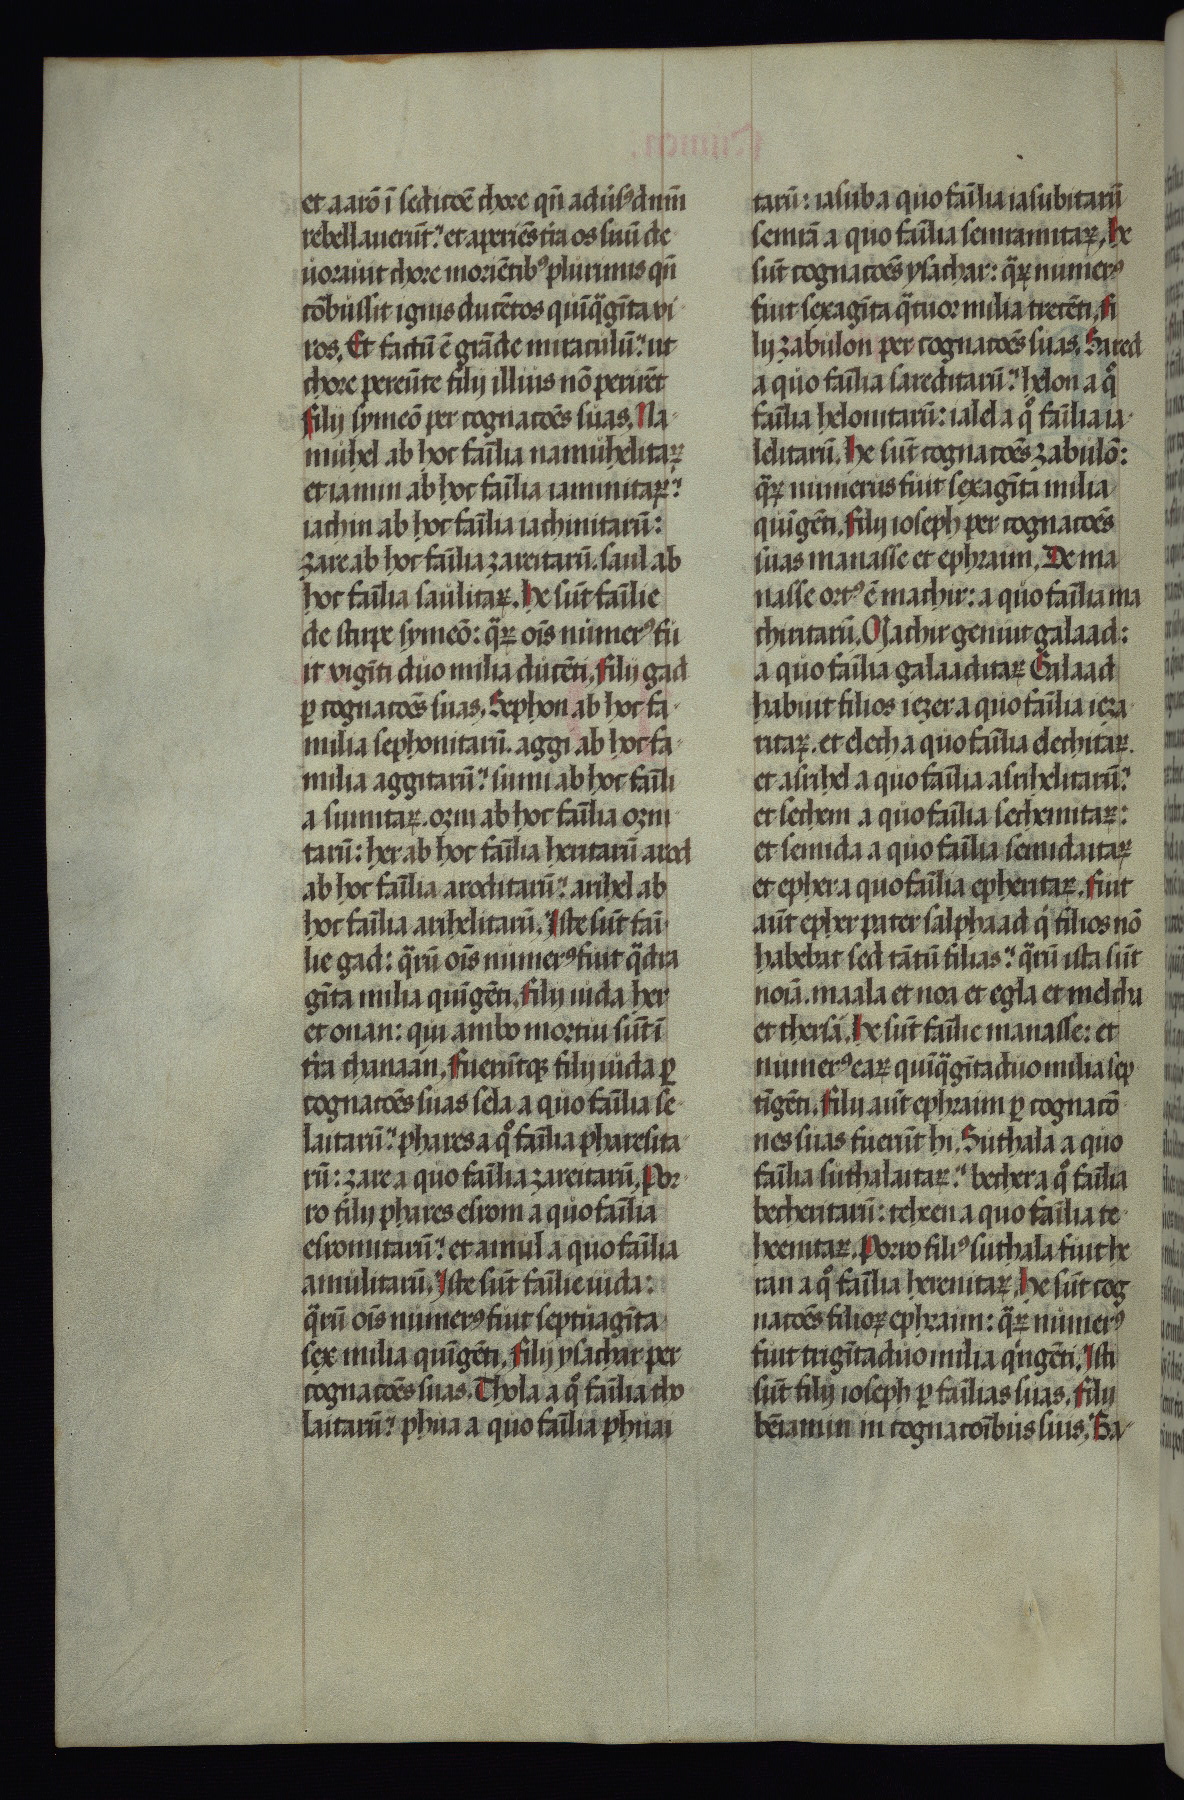 et aarō ī sedicōē chore qn̄ adūsꝰ dnm̄
rebellauerūt. et aperiēs tr̄a os suū de
uorauit chore moriētibꝰ plurimis qn̄
cōbussit ignis ducētos quīq̈gīta vi
ros. Et factū ē grāde miraculū. ut
chore pereūte filij illius nō perirēt
filij symeō per cognacōēs suas. Na-
muhel ab hoc fāilia namuhelitaꝝ
et iamin ab hoc fāilia iaminitaꝝ.
iachin ab hoc fāilia iachinitarū:
zare ab hoc fāilia zareitarū. saul ab
hoc fāilia saulitaꝝ. he sūt fāilie
de stirpe symeō: q̈ꝝ oīs numerꝰ fu
it vigīti duo milia ducēti. filij gad
ꝑ cognacōēs suas. Sephon ab hoc fa-
milia sephonitarū. aggi ab hoc fa-
milia aggitarū. suni ab hoc fāili
a sunitaꝝ. ozni ab hoc fāilia ozni
tarū: her ab hoc fāilia heritarū arod
ab hoc fāilia aroditarū. arihel ab
hoc fāilia arihelitarū. Iste sūt fāi
lie gad: q̈rū oīs numerꝰ fuit q̈dra
gīta milia quīgēti. filij iuda her
et onan: qui ambo mortui sūt ī
tr̄a chanaan. fuerūtqꝫ filij iuda ꝑ
cognacōēs suas sela a quo fāilia se-
laitarū. phares a qͦ fāilia pharesita
rū: zare a quo fāilia zareitarū. Por-
ro filij phares esrom a quo fāilia
esromitarū. et amul a quo fāilia
amulitarū. Iste sūt fāilie iuda:
q̈rū oīs numerꝰ fuit septuagīta
sex milia quīgēti. filij ysachar per
cognacōēs suas. Thola a qͦ fāilia tho
laitarū. phua a quo fāilia phuai
tarū: iasub a quo fāilia iasubitarū
semrā a quo fāilia semranitaꝝ. he
sūt cognacōēs ysachar: q̈ꝝ numerꝰ
fuit sexagīta q̈tuor milia trecēti. fi
lij zabulon per cognacōēs suas. Sared
a quo fāilia sareditarū. helon a qͦ
fāilia helonitarū: ialel a qͦ fāilia ia-
lelitarū. he sūt cognacōēs zabulō:
q̈ꝝ numerus fuit sexagīta milia
quīgēti. filij ioseph per cognacōēs
suas manasse et ephraim. De ma
nasse ortꝰ ē machir: a quo fāilia ma
chiritarū. Machir genuit galaad:
a quo fāilia galaaditaꝝ Galaad
habuit filios iezer a quo fāilia ieza-
ritaꝝ. et elech a quo fāilia elechitaꝝ.
et asrihel a quo fāilia asrihelitarū.
et sechem a quo fāilia sechemitaꝝ:
et semida a quo fāilia semidaitaꝝ
et epher a quo fāilia epheritaꝝ. fuit
aūt epher pater salphaad qͥ filios nō
habebat sed tātū filias. q̈rū ista sūt
noīa. maala et noa et egla et melcha
et thersā. he sūt fāilie manasse: et
numerꝰ eaꝝ quīq̈gīta duo milia sep
tīgēti. filij aūt ephraim ꝑ cognacō
nes suas fuerūt hi. Suthala a quo
fāilia suthalaitaꝝ. becher a qͦ fāilia
becheritarū: tehen a quo fāilia te-
henitaꝝ. Porro filiꝰ suthala fuit he
ran a qͦ fāilia herenitaꝝ. he sūt cog
nacōēs filioꝝ ephraim: q̈ꝝ numerꝰ
fuit trigīta duo milia qͥngēti. Isti
sūt filij ioseph ꝑ fāilias suas. filij
bēiamin in cognacōībus suis. Ba-